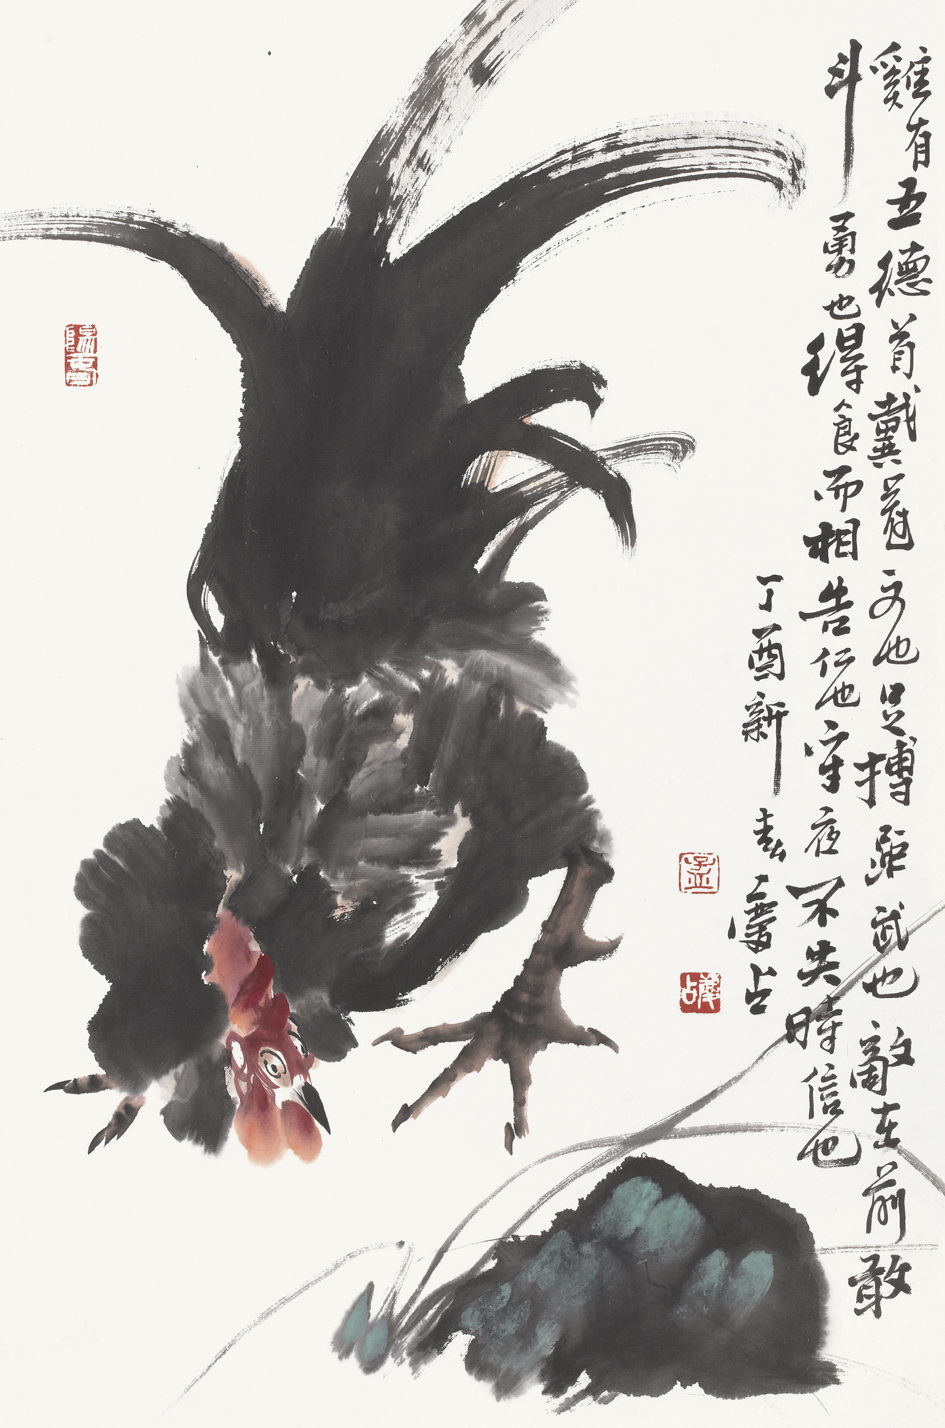 雞有五德首戴冠文也足搏距武也敵在前敢
斗勇也得食而相告仁也守夜不失時信也
丁酉新春雲占